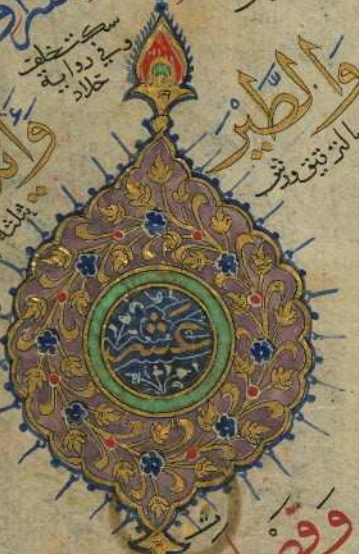 سكت خلف
وفي رواية
خلاد
وَالطَّيْرَ
بالترقيق ورش
عشر